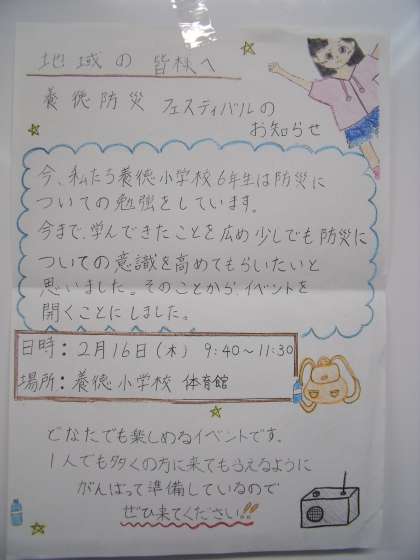 地域の 皆様へ
養徳防災 フェスティバルの
お知らせ
今、私たち養徳小学校6年生は防災に
ついての勉強をしています。
今まで、学んできたことを広め少しでも防災に
ついての意識を高めてもらいたいと
思いました。そのことから、イベントを
開くことにしました。
日時：2月16日(木) 9:40〜11:30
場所：養徳小学校 体育館
どなたでも楽しめるイベントです。
1人でも多くの方に来てもらえるように
がんばって準備しているので
ぜひ来てください!!